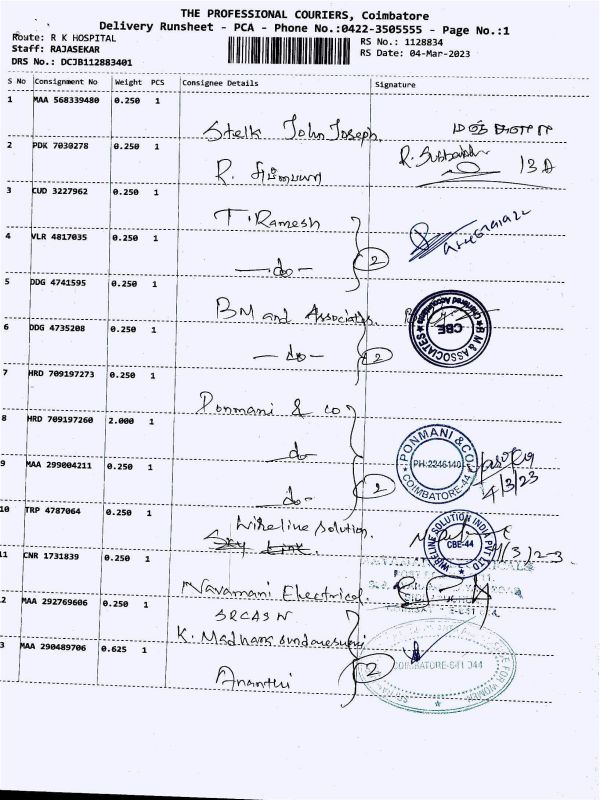 THE PROFESSIONAL COURIERS, Coimbatore
Delivery Runsheet - PCA - Phone No.:0422-3505555 - Page No.:1
Route: R K HOSPITAL
Staff: RAJASEKAR
DRS No.: DCJB112883401
RS No.: 1128834
RS Date: 04-Mar-2023
S No Consignment No Weight PCS Consignee Details Signature
1 MAA 568339480 0.250 1
Stelk John Joseph.
2 PDK 7030278 0.250 1
R. Subbaiah 13 A
3 CUD 3227962 0.250 1
T. Ramesh
4 VLR 4817035 0.250 1
-do- 2
5 DDG 4741595 0.250 1
BM and Associates.
B M & ASSOCIATES
Chartered Accountants
CBE
6 DDG 4735208 0.250 1
-do- 2
7 HRD 709197273 0.250 1
Ponmani & Co
8 HRD 709197260 2.000 1
-do-
PONMANI & CO
PH:2246140
COIMBATORE-44
4/3/23
9 MAA 299004211 0.250 1
-do-
10 TRP 4787064 0.250 1
Wireline Solution.
WIRELINE SOLUTION INDIA PVT LTD
CBE-44
11 CNR 1731839 0.250 1
Navamani Electrical.
2 MAA 292769606 0.250 1
SRCASW
K. Madhana sundareswari
3 MAA 290489706 0.625 1
Ananthi 2
COIMBATORE-641 044
FOR WOMEN